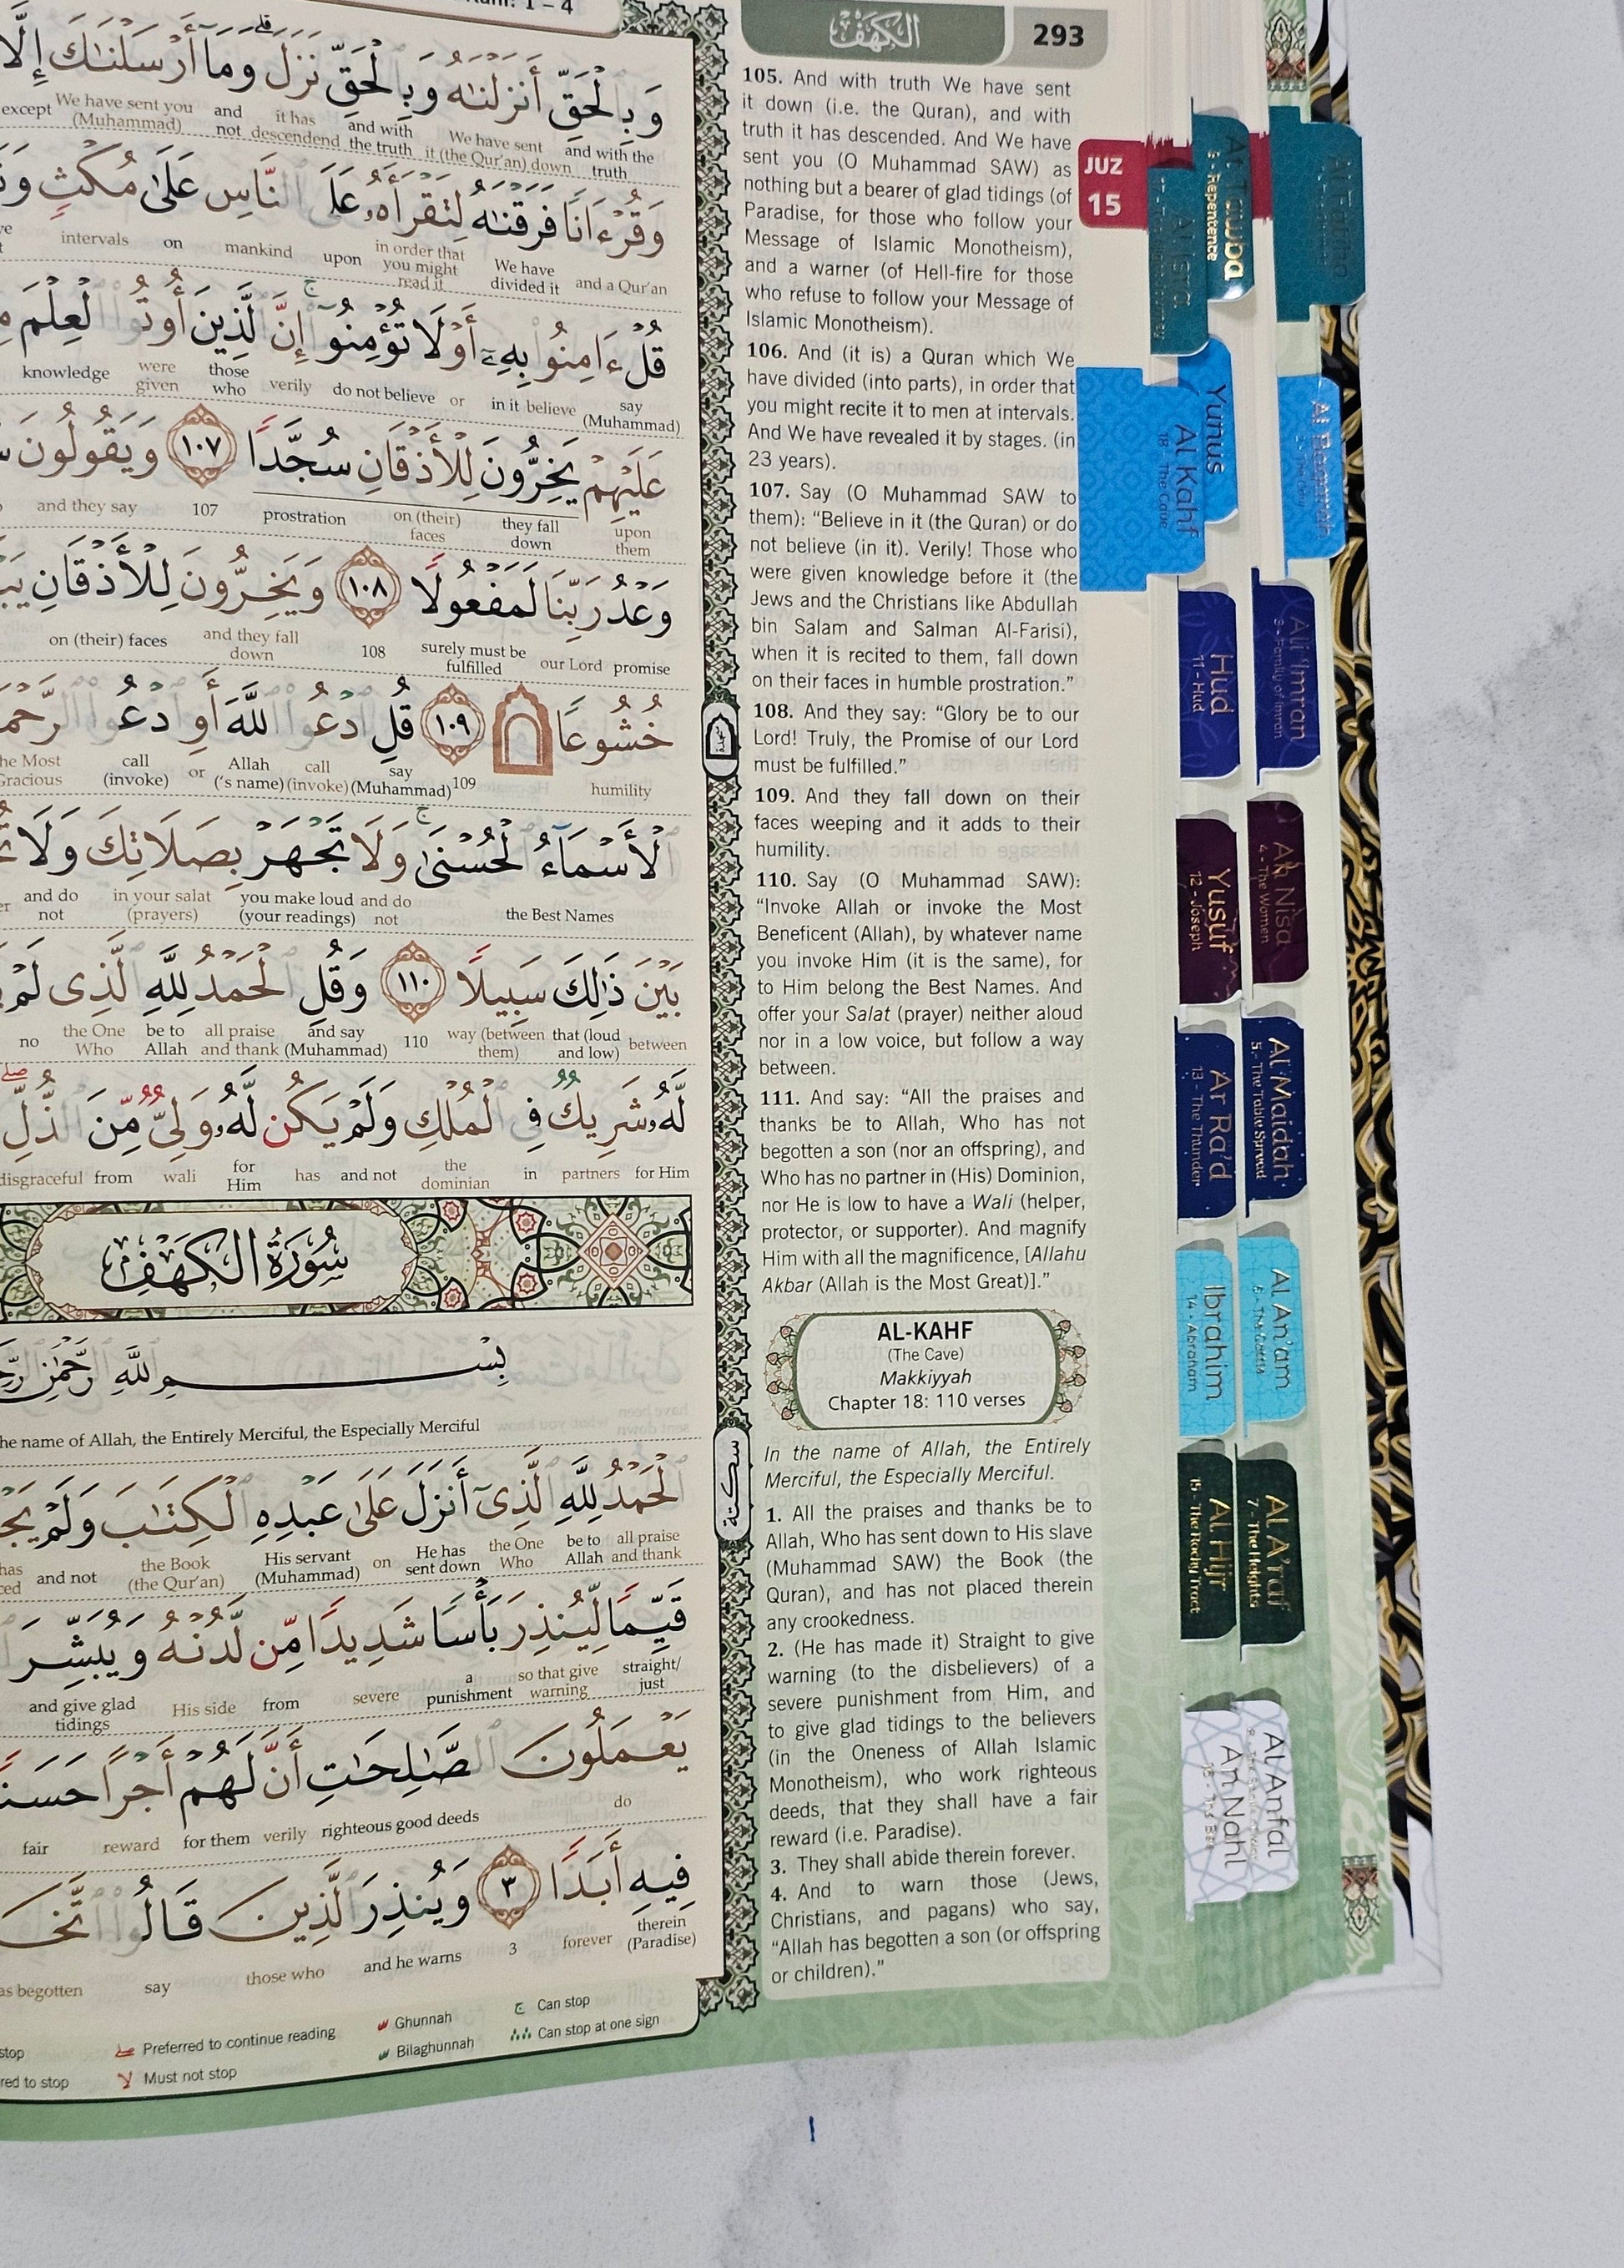 : 1 – 4
الكهف
293
وَبِالْحَقِّ أَنزَلْنَٰهُ وَبِالْحَقِّ نَزَلَ وَمَا أَرْسَلْنَٰكَ إِلَّا
and with the truth We have sent it (the Qur'an) down and with the truth it has descendend and not We have sent you (Muhammad) except
وَقُرْءَانًا فَرَقْنَٰهُ لِتَقْرَأَهُۥ عَلَى النَّاسِ عَلَىٰ مُكْثٍ
and a Qur'an We have divided it in order that you might read it upon mankind on intervals
قُلْ ءَامِنُوا بِهِۦٓ أَوْ لَا تُؤْمِنُوٓا إِنَّ الَّذِينَ أُوتُوا الْعِلْمَ
say (Muhammad) in it believe or do not believe verily those who were given knowledge
عَلَيْهِمْ يَخِرُّونَ لِلْأَذْقَانِ سُجَّدًا ١٠٧ وَيَقُولُونَ
upon them they fall down on (their) faces prostration 107 and they say
وَعْدُ رَبِّنَا لَمَفْعُولًا ١٠٨ وَيَخِرُّونَ لِلْأَذْقَانِ
promise our Lord surely must be fulfilled 108 and they fall down on (their) faces
خُشُوعًا ١٠٩ قُلِ ادْعُوا اللَّهَ أَوِ ادْعُوا
humility 109 say (Muhammad) call (invoke) Allah ('s name) or call (invoke) the Most Gracious
الْأَسْمَآءُ الْحُسْنَىٰ وَلَا تَجْهَرْ بِصَلَاتِكَ وَلَا
the Best Names and do not you make loud (your readings) in your salat (prayers) and do not
بَيْنَ ذَٰلِكَ سَبِيلًا ١١٠ وَقُلِ الْحَمْدُ لِلَّهِ الَّذِى لَمْ
between that (loud and low) way (between them) 110 and say (Muhammad) all praise and thank be to Allah the One Who no
لَّهُۥ شَرِيكٌ فِى الْمُلْكِ وَلَمْ يَكُن لَّهُۥ وَلِىٌّ مِّنَ الذُّلِّ
for Him partners in the dominian and not has for Him wali from disgraceful
سُورَةُ الكَهْفِ
بِسْمِ اللَّهِ الرَّحْمَٰنِ
the name of Allah, the Entirely Merciful, the Especially Merciful
الْحَمْدُ لِلَّهِ الَّذِىٓ أَنزَلَ عَلَىٰ عَبْدِهِ الْكِتَٰبَ وَلَمْ
all praise and thank be to Allah the One Who He has sent down on His servant (Muhammad) the Book (the Qur'an) and not has
قَيِّمًا لِّيُنذِرَ بَأْسًا شَدِيدًا مِّن لَّدُنْهُ وَيُبَشِّرَ
straight/ just so that give warning a punishment severe from His side and give glad tidings
يَعْمَلُونَ الصَّٰلِحَٰتِ أَنَّ لَهُمْ أَجْرًا
do righteous good deeds verily for them reward fair
فِيهِ أَبَدًا ٣ وَيُنذِرَ الَّذِينَ قَالُوا
therein (Paradise) forever 3 and he warns those who say begotten
stop
Preferred to continue reading
Ghunnah
Can stop
to stop
Must not stop
Bilaghunnah
Can stop at one sign
سجدة
سكتة
105. And with truth We have sent
it down (i.e. the Quran), and with
truth it has descended. And We have
sent you (O Muhammad SAW) as
nothing but a bearer of glad tidings (of
Paradise, for those who follow your
Message of Islamic Monotheism),
and a warner (of Hell-fire for those
who refuse to follow your Message of
Islamic Monotheism).
106. And (it is) a Quran which We
have divided (into parts), in order that
you might recite it to men at intervals.
And We have revealed it by stages. (in
23 years).
107. Say (O Muhammad SAW to
them): “Believe in it (the Quran) or do
not believe (in it). Verily! Those who
were given knowledge before it (the
Jews and the Christians like Abdullah
bin Salam and Salman Al-Farisi),
when it is recited to them, fall down
on their faces in humble prostration.”
108. And they say: “Glory be to our
Lord! Truly, the Promise of our Lord
must be fulfilled.”
109. And they fall down on their
faces weeping and it adds to their
humility.
110. Say (O Muhammad SAW):
“Invoke Allah or invoke the Most
Beneficent (Allah), by whatever name
you invoke Him (it is the same), for
to Him belong the Best Names. And
offer your Salat (prayer) neither aloud
nor in a low voice, but follow a way
between.
111. And say: “All the praises and
thanks be to Allah, Who has not
begotten a son (nor an offspring), and
Who has no partner in (His) Dominion,
nor He is low to have a Wali (helper,
protector, or supporter). And magnify
Him with all the magnificence, [Allahu
Akbar (Allah is the Most Great)].”
AL-KAHF
(The Cave)
Makkiyyah
Chapter 18: 110 verses
In the name of Allah, the Entirely
Merciful, the Especially Merciful.
1. All the praises and thanks be to
Allah, Who has sent down to His slave
(Muhammad SAW) the Book (the
Quran), and has not placed therein
any crookedness.
2. (He has made it) Straight to give
warning (to the disbelievers) of a
severe punishment from Him, and
to give glad tidings to the believers
(in the Oneness of Allah Islamic
Monotheism), who work righteous
deeds, that they shall have a fair
reward (i.e. Paradise).
3. They shall abide therein forever.
4. And to warn those (Jews,
Christians, and pagans) who say,
“Allah has begotten a son (or offspring
or children).”
JUZ
15
At Tawba
9 - Repentence
Al Isra
Al Fatiha
Yunus
Al Kahf
18 - The Cave
Al Baqarah
Hud
11 - Hud
Ali 'Imran
3 - Family of Imran
Yusuf
12 - Joseph
An Nisa
4 - The Women
Ar Ra'd
13 - The Thunder
Al Maidah
5 - The Table Spread
Ibrahim
14 - Abraham
Al An'am
6 - The Cattle
Al Hijr
15 - The Rocky Tract
Al A'raf
7 - The Heights
An Nahl
16 - The Bee
Al Anfal